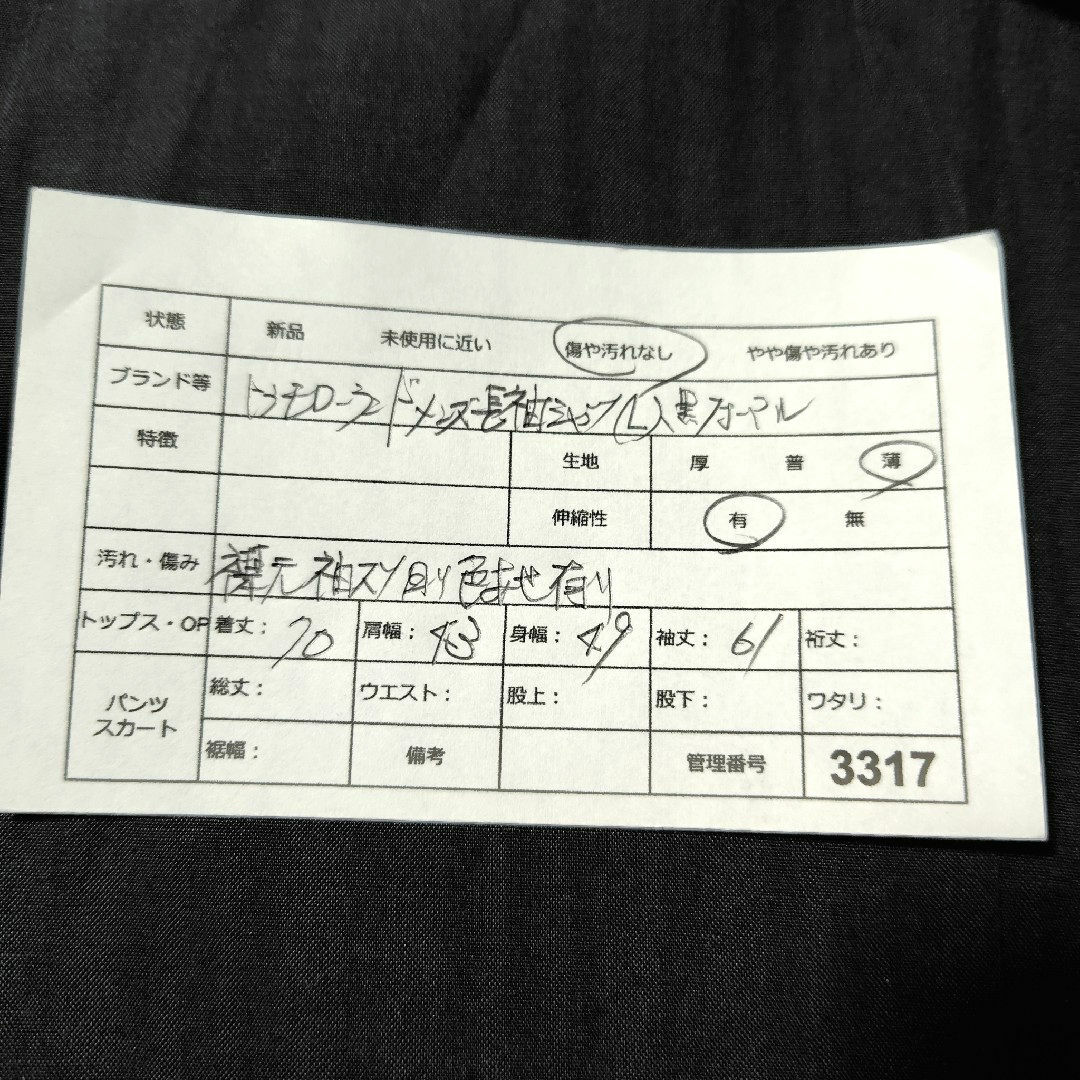 状態 新品 未使用に近い 傷や汚れなし やや傷や汚れあり
ブランド等 メンズ長袖シャツ(L)黒フォーマル
特徴 生地 厚 普 薄
伸縮性 有 無
汚れ・傷み 襟元袖スソ回り色あせ有り
トップス・OP 着丈: 70 肩幅: 43 身幅: 49 袖丈: 61 裄丈:
パンツ スカート 総丈: ウエスト: 股上: 股下: ワタリ:
裾幅: 備考 管理番号 3317